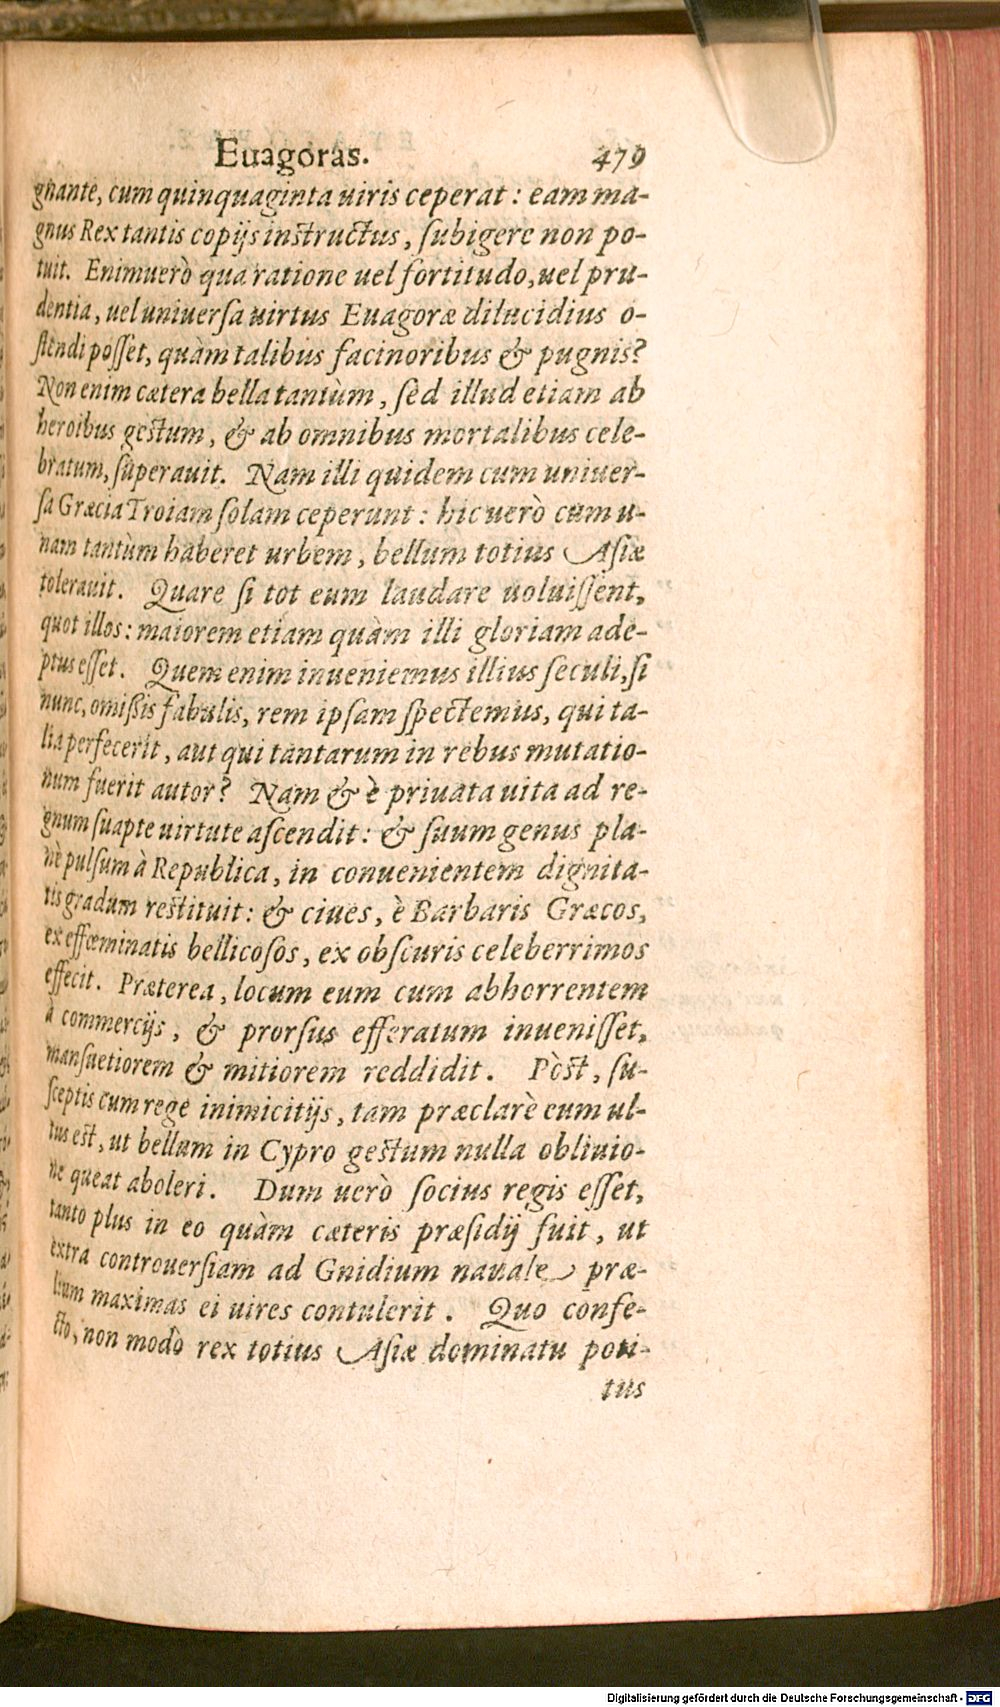 Euagoras. 479
gnante, cum quinquaginta uiris ceperat: eam ma-
gnus Rex tantis copijs instructus, subigere non po-
tuit. Enimuerò qua ratione uel fortitudo, uel pru-
dentia, uel uniuersa uirtus Euagoræ dilucidius o-
stendi posset, quàm talibus facinoribus & pugnis?
Non enim cætera bella tantùm, sed illud etiam ab
heroibus gestum, & ab omnibus mortalibus cele-
bratum, superauit. Nam illi quidem cum uniuer-
sa Græcia Troiam solam ceperunt: hic uerò cum u-
nam tantùm haberet urbem, bellum totius Asiæ
tolerauit. Quare si tot eum laudare uoluissent,
quot illos: maiorem etiam quàm illi gloriam ade-
ptus esset. Quem enim inueniemus illius seculi, si
nunc, omissis fabulis, rem ipsam spectemus, qui ta-
lia perfecerit, aut qui tantarum in rebus mutatio-
num fuerit autor? Nam & è priuata uita ad re-
gnum suapte uirtute ascendit: & suum genus pla-
nè pulsum à Republica, in conuenientem dignita-
tis gradum restituit: & ciues, è Barbaris Græcos,
ex effœminatis bellicosos, ex obscuris celeberrimos
effecit. Præterea, locum eum cum abhorrentem
à commercijs, & prorsus efferatum inuenisset,
mansuetiorem & mitiorem reddidit. Pòst, su-
sceptis cum rege inimicitijs, tam præclarè eum ul-
tus est, ut bellum in Cypro gestum nulla obliuio-
ne queat aboleri. Dum uerò socius regis esset,
tanto plus in eo quàm cæteris præsidij fuit, ut
extra controuersiam ad Gnidium nauale præ-
lium maximas ei uires contulerit. Quo confe-
cto, non modò rex totius Asiæ dominatu poti-
tus
Digitalisierung gefördert durch die Deutsche Forschungsgemeinschaft - DFG